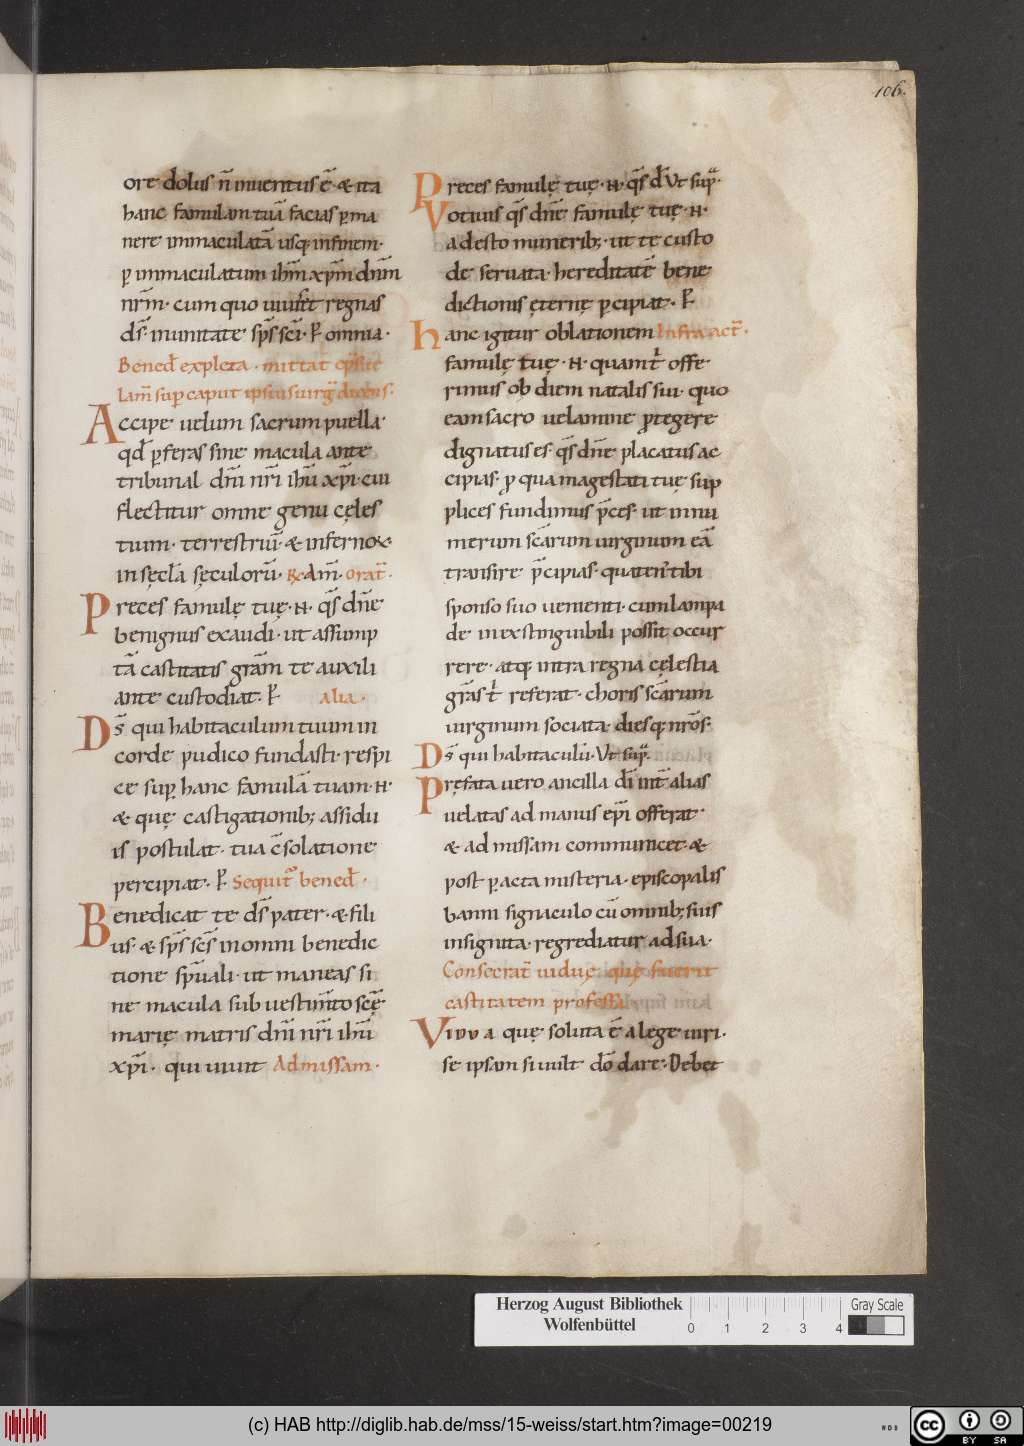 106.
ore dolus n̄ inuentus ē· & ita
hanc famulam tuā facias ꝑma
nere immaculatā usq; in finem·
ꝑ immaculatum ihm̄ xp̄m dnm̄
nrm̄· cum quo uiuit et regnas
ds̄ in unitate sp̄s sc̄i· ꝑ omnia·
Bened̄ expleta· mittat̄ ep̄s ue
lam̄ suꝑ caput ipsius uirḡ dicens·
Accipe uelum sacrum puella·
qd̄ ꝑferas sine macula ante
tribunal dn̄i nr̄i ihū xp̄i· cui
flectitur omne genu cęles
tium· terrestriū· & infernoꝝ·
in sęcl̄a sęculorū· R̄ Am̄· orat̄·
Preces famulę tuę· N· qs̄ dn̄e
benignus exaudi· ut assump
tā castitatis gram̄ te auxili
ante custodiat· ꝑ alia·
Ds̄ qui habitaculum tuum in
corde pudico fundasti· respi
ce suꝑ hanc famulā tuam· N·
& quę castigationib; assidu
is postulat· tua c̄solatione
percipiat· ꝑ Sequit᷑ bened̄·
Benedicat te ds̄ pater· & fili
us· & sp̄s sc̄s in omni benedic
tione sp̄uali· ut maneas si
ne macula sub uestim̄to sc̄ę
marię matris dn̄i nr̄i ihū
xp̄i· qui uiuit Ad missam·
Preces famulę tuę· N· qs̄ d̄· Ut sup̄·
Votiuis qs̄ dn̄e famulę tuę· N·
adesto munerib;· ut te custo
de seruata· hereditatē bene
dictionis ęternę ꝑcipiat· ꝑ
Hanc igitur oblationem Infra act̄·
famulę tuę· N· quam t᷑ offe
rimus ob diem natalis sui· quo
eam sacro uelamine ꝓtegere
dignatus es· qs̄ dn̄e placatus ac
cipias· ꝓ qua magestati tuę sup
plices fundimus p̄ces· ut in nu
merum sc̄arum uirginum eā
transire p̄cipias· quaten᷑ tibi
sponso suo uenienti· cum lampa
de inextinguibili possit occur
rere· atq; intra regna cęlestia
gr̄as t᷑ referat· choris sc̄arum
uirginum sociata· diesq; nr̄os·
Ds̄ qui habitaculū· Ut sup̄·
Pręfata uero ancilla dī int̄ alias
uelatas ad manus ep̄i offerat·
& ad missam communicet· &
post ꝑacta misteria· episcopalis
banni signaculo cū omnib; suis
insignita· regrediatur ad sua·
Consecrat̄ uiduę quę fuerit
castitatem professa
Vidua quę soluta ē a lege uiri·
se ipsam si uult dō dare· Debet
Herzog August Bibliothek
Wolfenbüttel
0 1 2 3 4
Gray Scale
(c) HAB http://diglib.hab.de/mss/15-weiss/start.htm?image=00219
cc BY SA